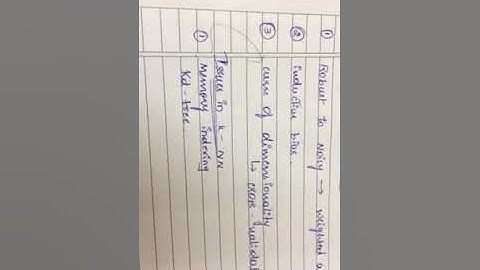 ① Robust to Noisy → weighted a
② inductive bias.
③ curse of dimensionality
↳ cross-validat
Issues in k-NN
① Memory indexing
Kd-tree.